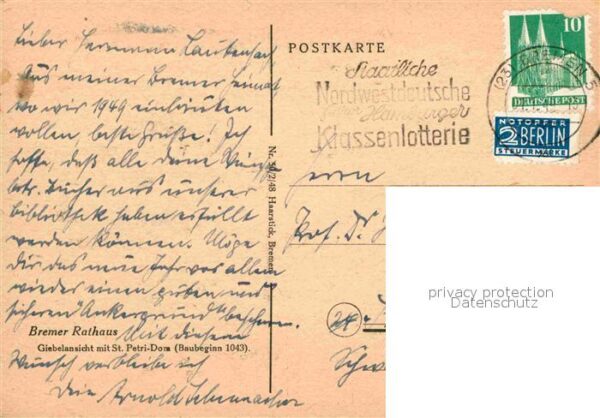 Lieber Herrmann Lautensach
Aus meiner Bremer Heimat
wo wir 1949 einläuten
wollen, beste Grüße! Ich
hoffe, daß alle deine Wünsche
betr. Bücher aus unserer
Bibliothek haben erfüllt
werden können. Möge
Dir das neue Jahr vor allem
wieder einen guten und
sicheren "Ankergrund" bescheren.
Mit diesem
Wunsch verbleibe ich
Dein Arnold
Bremer Rathaus
Giebelansicht mit St. Petri-Dom (Baubeginn 1043).
Nr. 50/2/48 Haarstick, Bremen
POSTKARTE
Staatliche
Nordwestdeutsche
Hamburger
Klassenlotterie
(23) BREMEN 5
10
DEUTSCHE POST
NOTOPFER
2 BERLIN
STEUERMARKE
Herrn
Prof. Dr.
privacy protection
Datenschutz